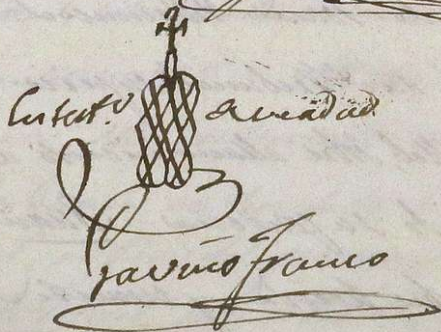 En testº de verdad
Gavino Franco